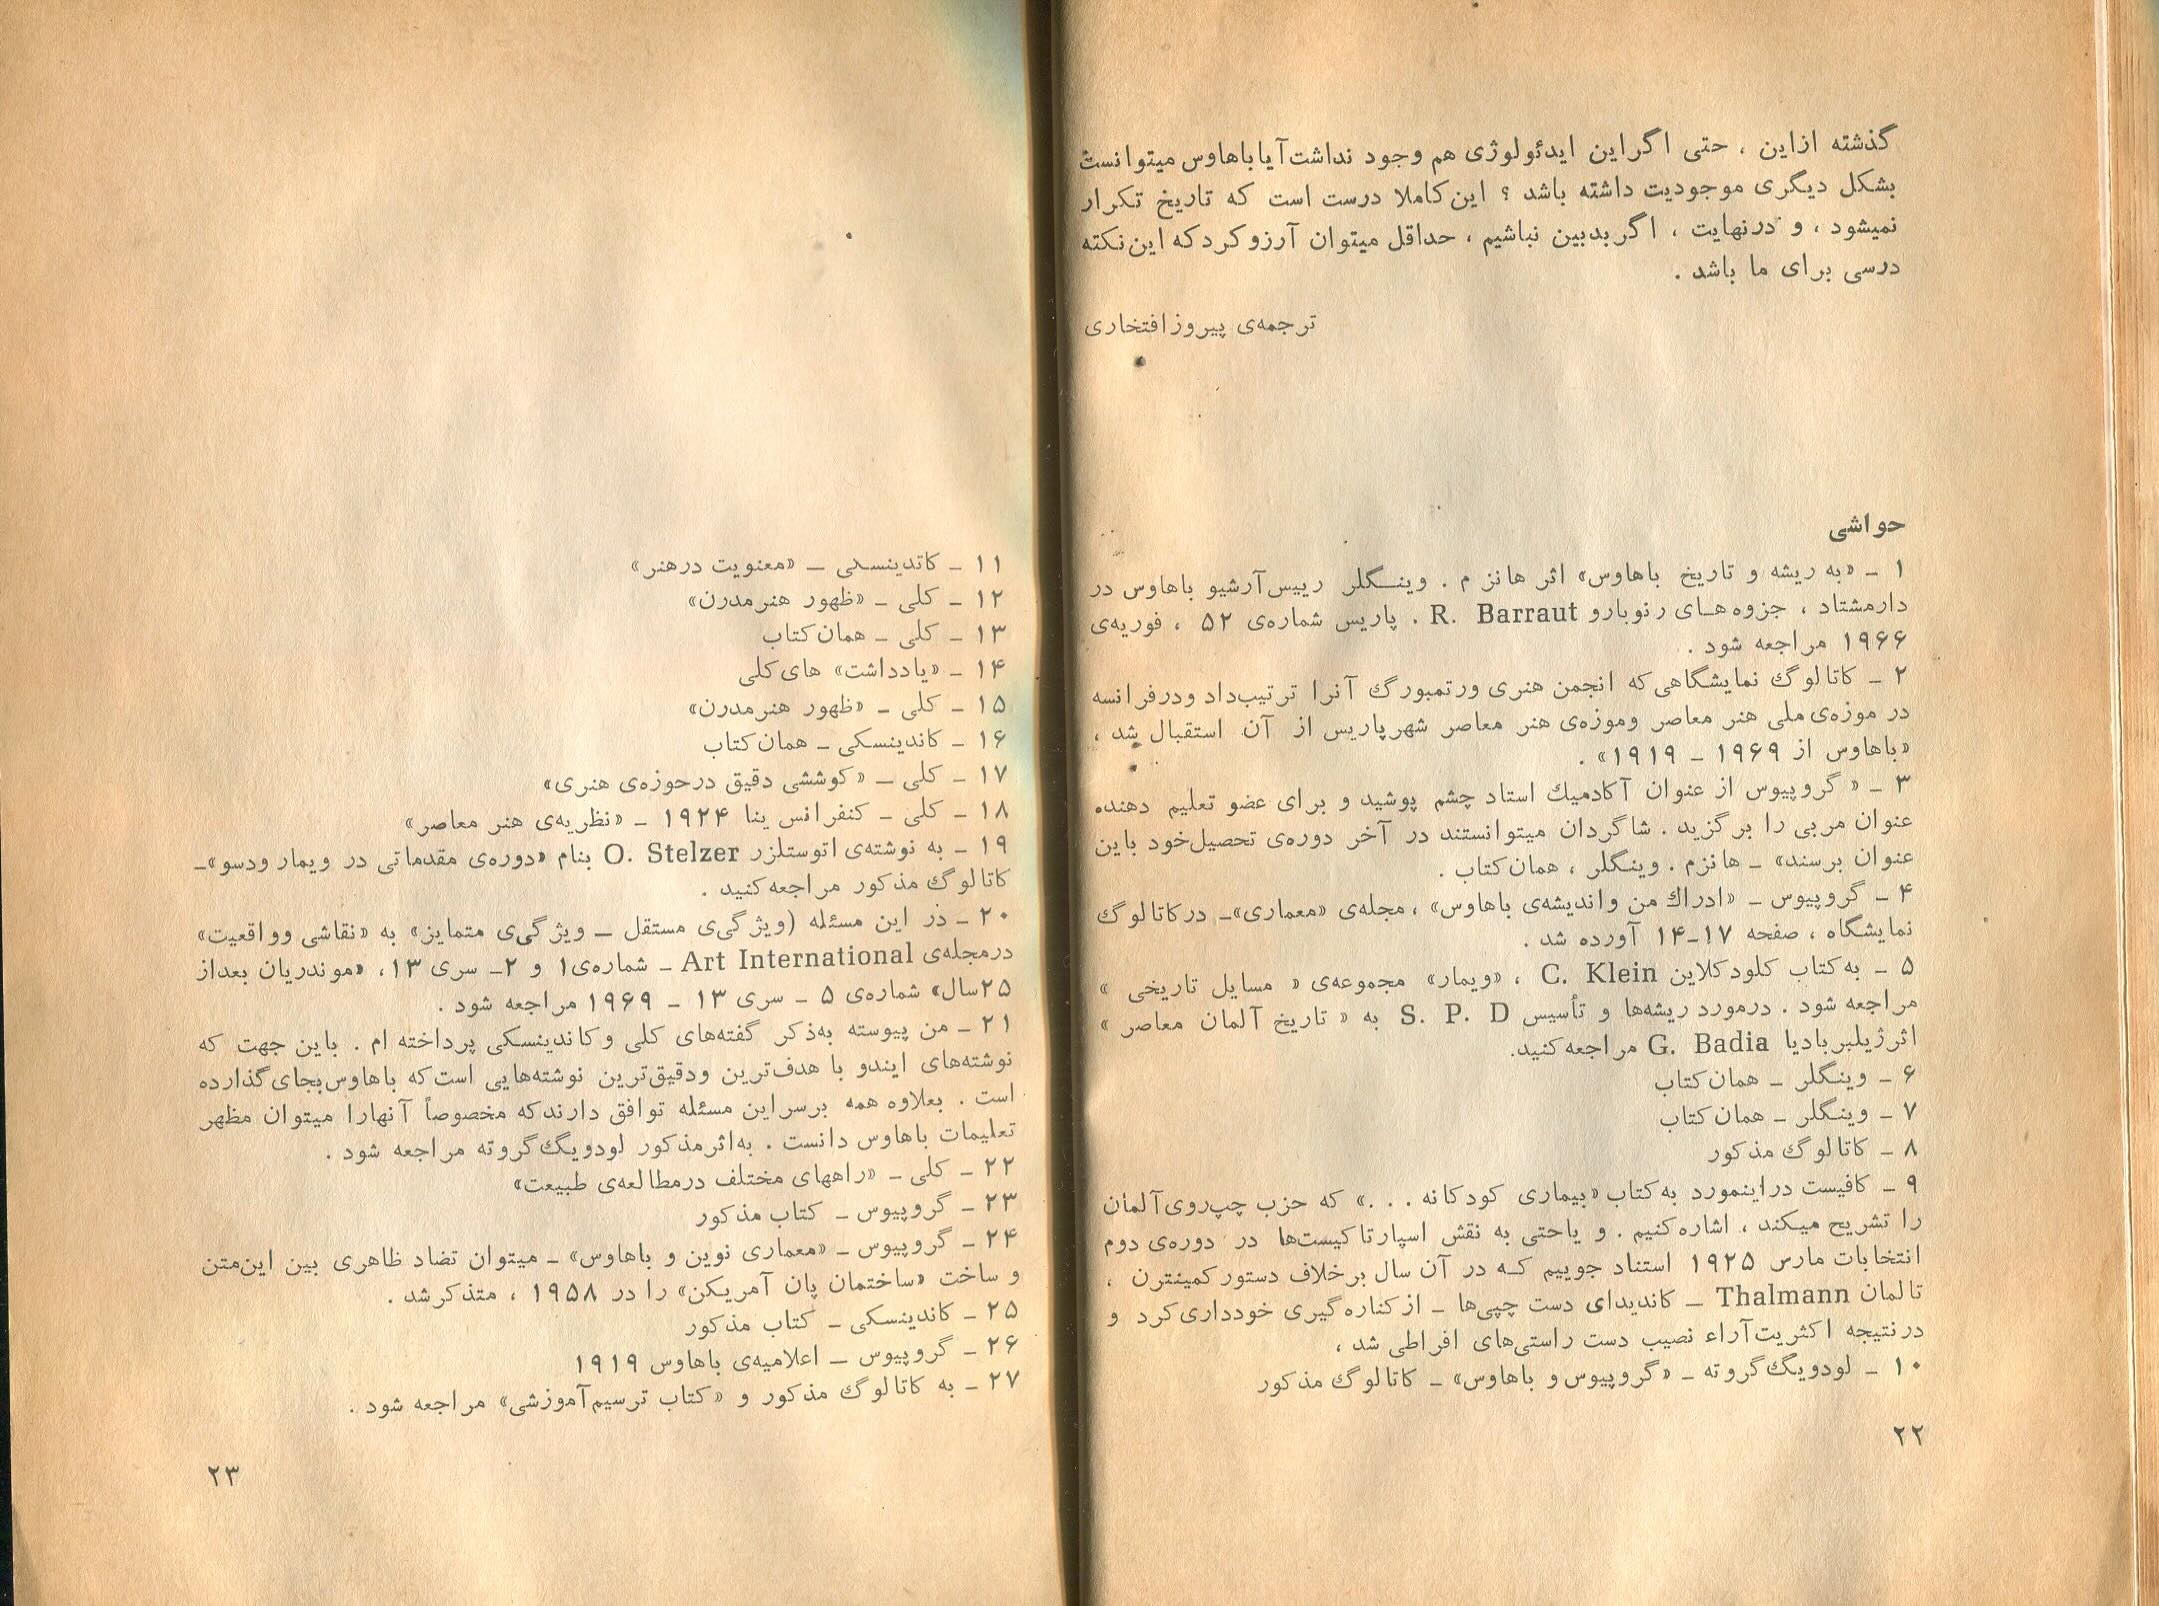 گذشته ازاین ، حتی اگراین ایدئولوژی هم وجود نداشت‌آیاباهاوس میتوانست
بشکل دیگری موجودیت داشته باشد ؟ این‌کاملا درست است که تاریخ تکرار
نمیشود ، و درنهایت ، اگر بدبین نباشیم ، حداقل میتوان آرزو کرد که این‌نکته
درسی برای ما باشد .
ترجمه‌ی پیروز افتخاری
حواشی
۱ ـ «به ریشه و تاریخ باهاوس» اثر هانز م . وینـگلر رییس‌آرشیو باهاوس در
دارمشتاد ، جزوه‌هـای رنوبارو R. Barraut . پاریس شماره‌ی ۵۲ ، فوریه‌ی
۱۹۶۶ مراجعه شود .
۲ ـ کاتالوگ نمایشگاهی‌که انجمن هنری ورتمبورگ آنرا ترتیب‌داد ودرفرانسه
در موزه‌ی‌ملی هنر معاصر وموزه‌ی هنر معاصر شهرپاریس از آن استقبال شد ،
«باهاوس از ۱۹۶۹ ـ ۱۹۱۹» .
۳ ـ « گروپیوس از عنوان آکادمیك استاد چشم پوشید و برای عضو تعلیم دهنده
عنوان مربی را برگزید . شاگردان میتوانستند در آخر دوره‌ی تحصیل‌خود باین
عنوان برسند» ـ هانزم . وینگلر ، همان‌کتاب .
۴ ـ گروپیوس ـ «ادراك من واندیشه‌ی باهاوس» ، مجله‌ی «معماری»ـ درکاتالوگ
نمایشگاه ، صفحه ۱۷ـ۱۴ آورده شد .
۵ ـ به‌کتاب کلودکلاین C. Klein ، «ویمار» مجموعه‌ی « مسایل تاریخی »
مراجعه شود . درمورد ریشه‌ها و تأسیس S. P. D به « تاریخ آلمان معاصر »
اثرژیلبربادیا G. Badia مراجعه‌کنید.
۶ ـ وینگلر ـ همان‌کتاب
۷ ـ وینگلر ـ همان‌کتاب
۸ ـ کاتالوگ مذکور
۹ ـ کافیست دراینمورد به‌کتاب «بیماری کودکانه . . .» که حزب چپ‌روی‌آلمان
را تشریح میکند ، اشاره‌کنیم . و یاحتی به نقش اسپارتاکیست‌ها در دوره‌ی دوم
انتخابات مارس ۱۹۲۵ استناد جوییم کـه در آن سال برخلاف دستور کمینترن ،
تالمان Thalmann ـ کاندیدای دست چپی‌ها ـ ازکناره‌گیری خودداری‌کرد و
درنتیجه اکثریت‌آراء نصیب دست راستی‌های افراطی شد ،
۱۰ ـ لودویگ‌گروته ـ «گروپیوس و باهاوس» ـ کاتالوگ مذکور
۲۲
۱۱ ـ کاندینسکی ـ «معنویت درهنر»
۱۲ ـ کلی ـ «ظهور هنرمدرن»
۱۳ ـ کلی ـ همان‌کتاب
۱۴ ـ «یادداشت» های‌کلی
۱۵ ـ کلی ـ «ظهور هنرمدرن»
۱۶ ـ کاندینسکی ـ همان‌کتاب
۱۷ ـ کلی ـ «کوششی دقیق درحوزه‌ی هنری»
۱۸ ـ کلی ـ کنفرانس ینا ۱۹۲۴ ـ «نظریه‌ی هنر معاصر»
۱۹ ـ به نوشته‌ی اتوستلزر O. Stelzer بنام «دوره‌ی مقدماتی در ویمار ودسو»ـ
کاتالوگ مذکور مراجعه‌کنید .
۲۰ ـ در این مسئله (ویژگی‌ی مستقل ـ ویژگی‌ی متمایز» به «نقاشی وواقعیت»
درمجله‌ی Art International ـ شماره‌ی۱ و ۲ـ سری ۱۳، «موندریان بعداز
۲۵سال» شماره‌ی ۵ ـ سری ۱۳ ـ ۱۹۶۹ مراجعه شود .
۲۱ ـ من پیوسته به‌ذکر گفته‌های کلی وکاندینسکی پرداخته ام . باین جهت که
نوشته‌های ایندو با هدف‌ترین ودقیق‌ترین نوشته‌هایی است‌که باهاوس‌بجای‌گذارده
است . بعلاوه همه برسراین مسئله توافق دارندکه مخصوصاً آنهارا میتوان مظهر
تعلیمات باهاوس دانست . به‌اثرمذکور لودویگ‌گروته مراجعه شود .
۲۲ ـ کلی ـ «راههای مختلف درمطالعه‌ی طبیعت»
۲۳ ـ گروپیوس ـ کتاب مذکور
۲۴ ـ گروپیوس ـ «معماری نوین و باهاوس» ـ میتوان تضاد ظاهری بین این‌متن
و ساخت «ساختمان پان آمریکن» را در ۱۹۵۸ ، متذکرشد .
۲۵ ـ کاندینسکی ـ کتاب مذکور
۲۶ ـ گروپیوس ـ اعلامیه‌ی باهاوس ۱۹۱۹
۲۷ ـ به کاتالوگ مذکور و «کتاب ترسیم‌آموزشی» مراجعه شود .
۲۳